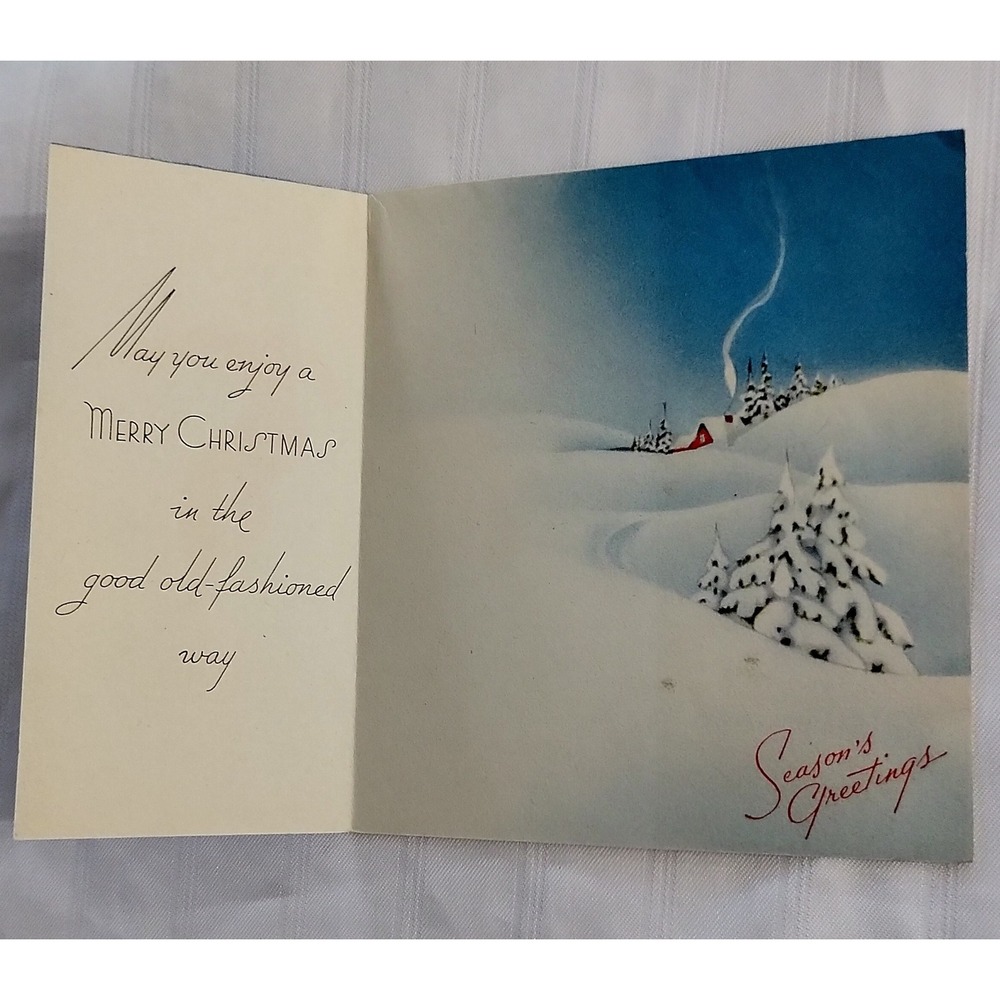 May you enjoy a
MERRY CHRISTMAS
in the
good old-fashioned
way
Season's
Greetings